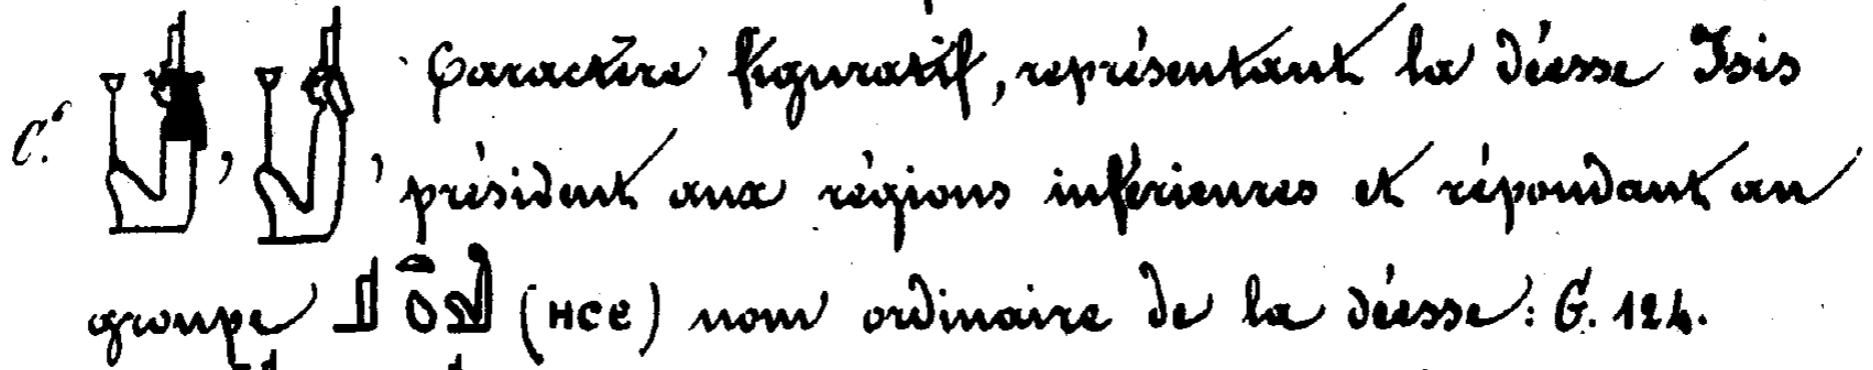 C. , , Caractère figuratif, représentant la déesse Isis
président aux régions inférieures et répondant au
groupe (ⲎⲤⲈ) nom ordinaire de la déesse : G. 124.